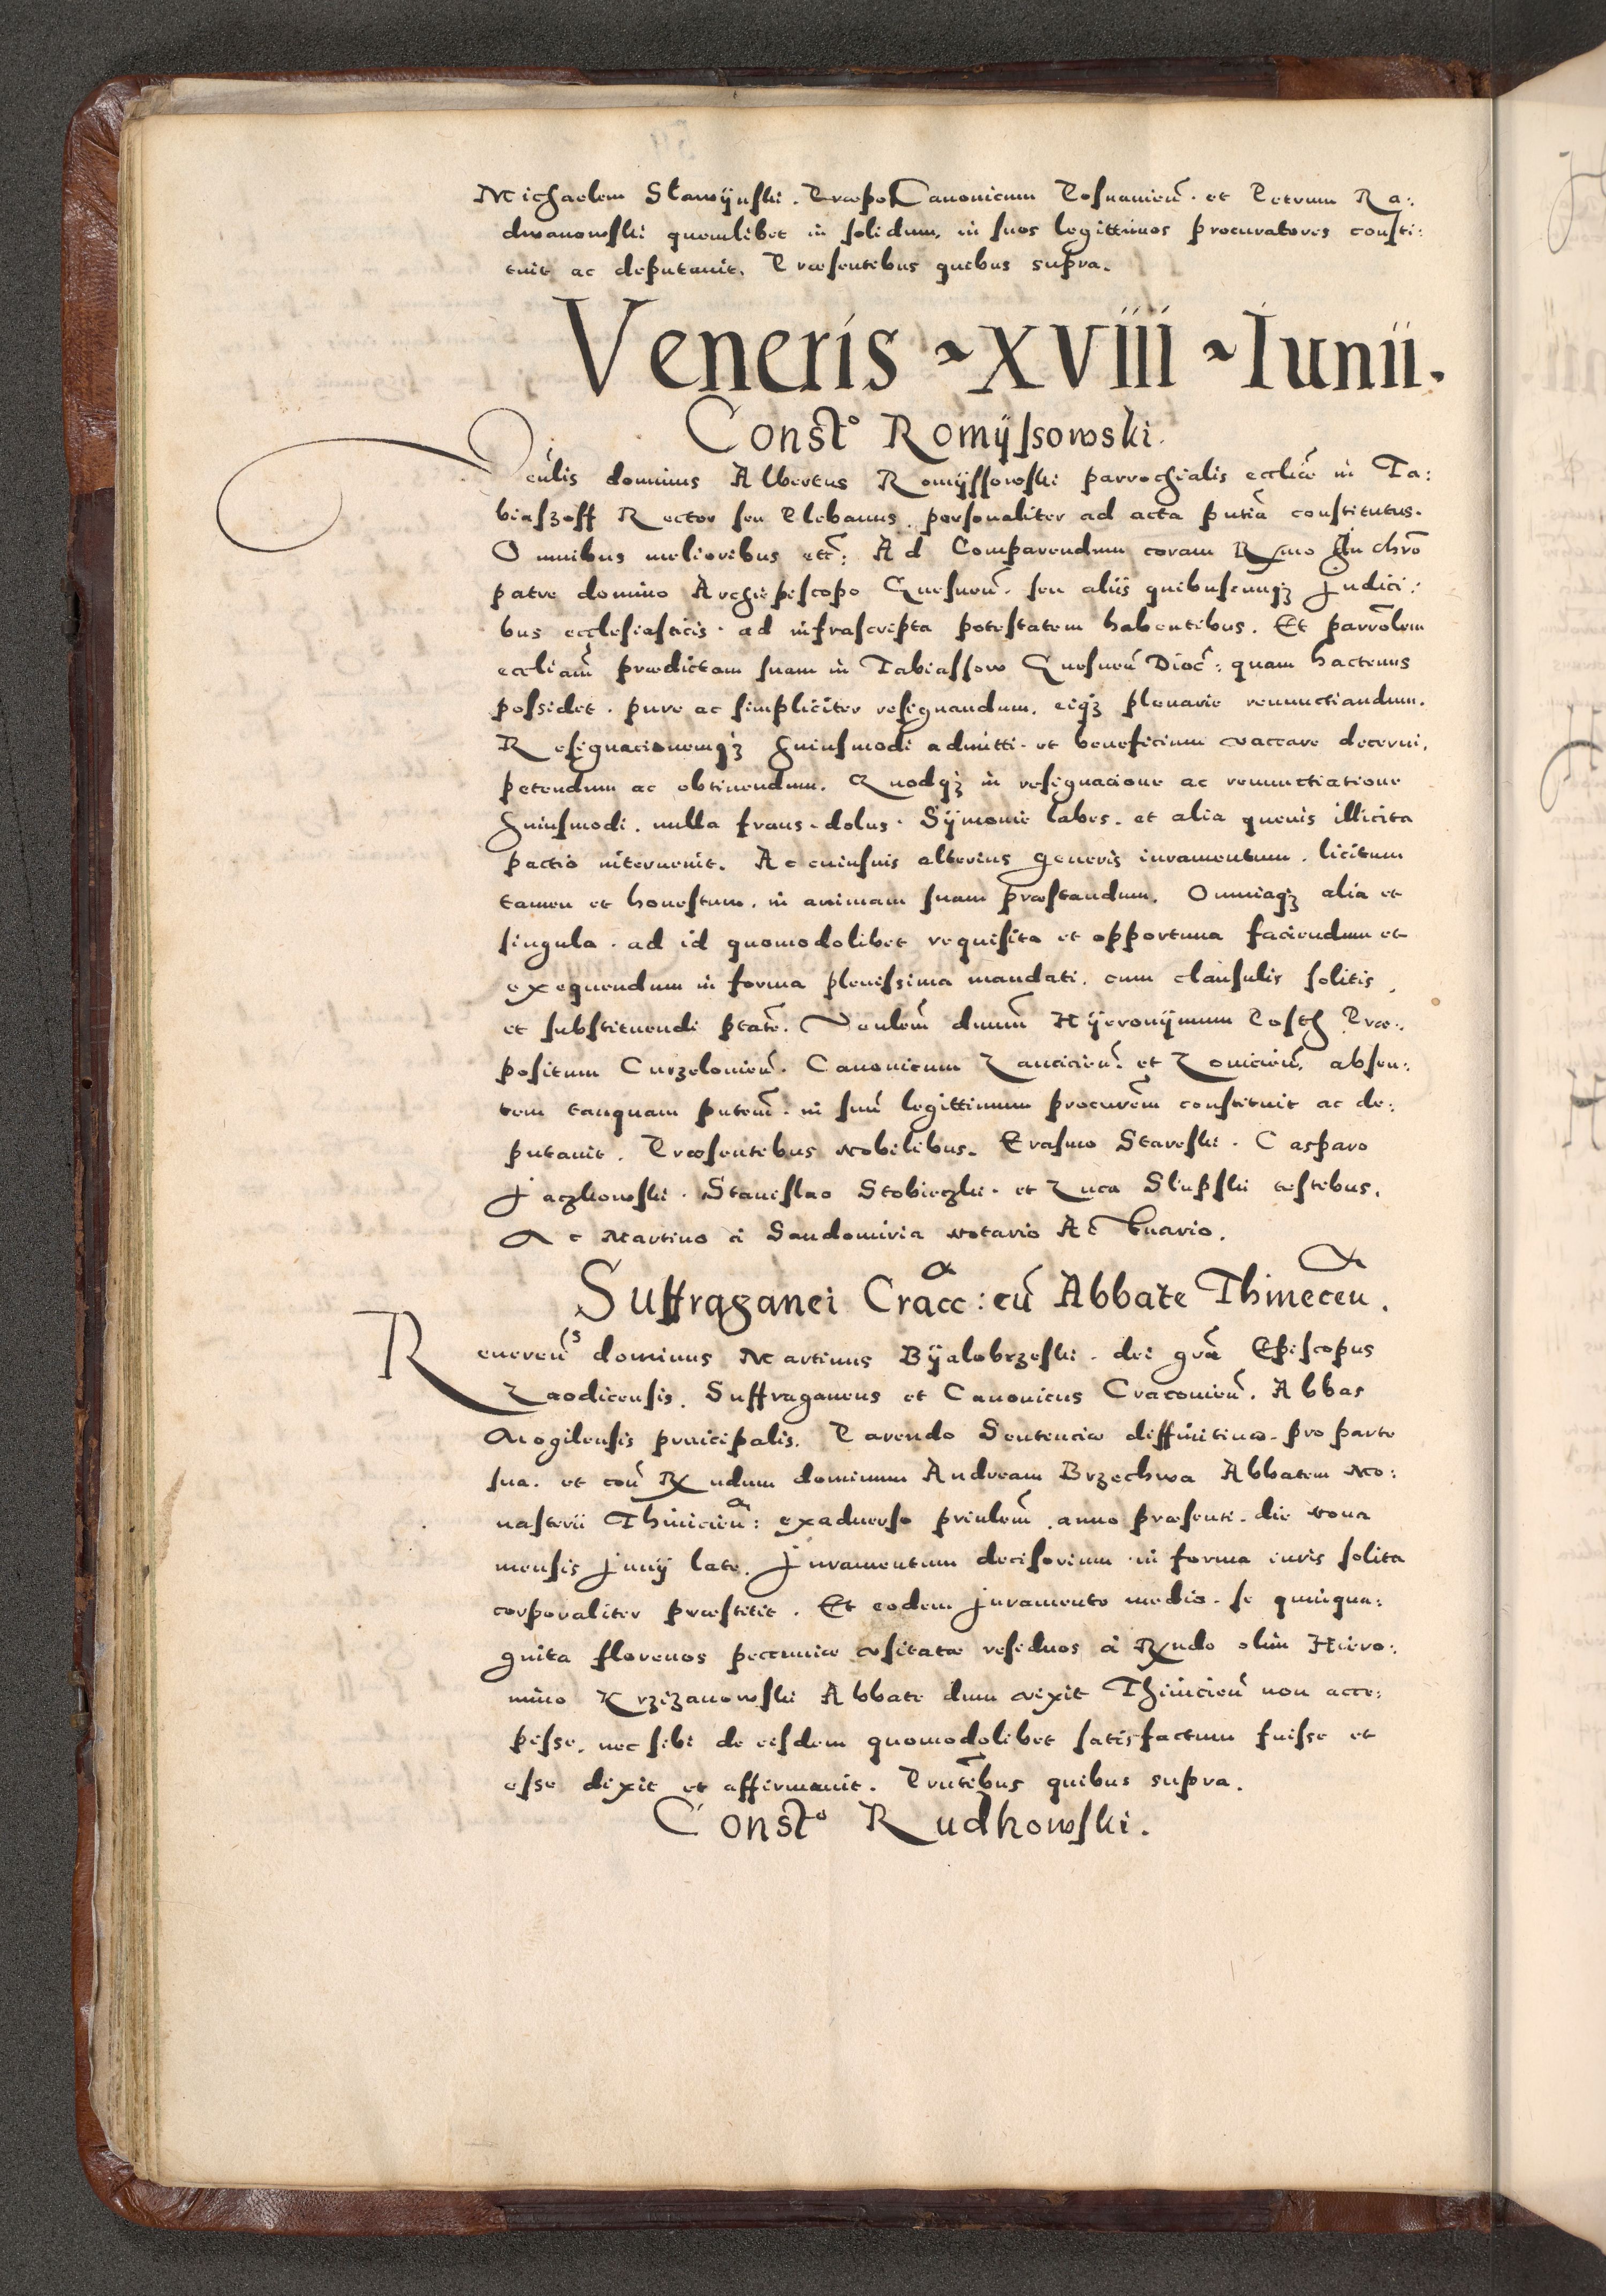 Michaelem Slawÿnski. Præpo Canonicum Posnanień. et Petrum Ra:
dwanowski quemlibet in solidum, in suos legittimos procuratores consti:
tuit ac deputauit. Præsentibus quibus supra.
Veneris ~ XVIII ~ Iunii.
Constᵒ Romÿssowski.
Venlis dominus Albertus Romÿssowski parrochialis eccliæ in Ta:
biaszoff Rector seu Plebanus, personaliter ad acta pntia constitutus.
Omnibus melioribus etc: Ad Comparendum coram Rmo in chro
patre domino Archiepiscopo Gnesnen. seu aliis quibuscunqȝ Judici:
bus ecclesiasticis. ad infrascripta potestatem habentibus. Et parrolem
eccliam prædictam suam in Tabiassow Gnesnen Dioc: quam hactenus
possidet. pure ac simpliciter resignandum, eiqȝ plenarie renunctiandum.
Resignacionemqȝ huiusmodi admitti. et beneficium vaccare decerni,
petendum ac obtinendum. Quodqȝ in resignacione ac renunctiatione
huiusmodi. nulla fraus. dolus. Sÿmonie labes. et alia queuis illicita
pactio interuenit. Ac cuiusuis alterius generis iuramentum. licitum
tamen et honestum. in animam suam præstandum. Omniaqȝ alia et
singula. ad id quomodolibet requisita et opportuna faciendum et
exequendum in forma plenissima mandati. cum clausulis solitis,
et substituendi ptate. Venlem dnum Hÿeronÿmum Posth Præ:
positum Curzelouien. Canonicum Lancicien. et Louicien. absen:
tem tanquam pntem. in suu legittimum procurem constituit ac de:
putauit. Præsentibus Nobilibus. Erasmo Stareski. Casparo
Jaczkowski. Stanislao Stobieczki. et Luca Slupski testibus.
Ac Martino à Sandomiria Notario Actuario.
Suffraganei Cracc: cu Abbate Thinecen.
Reuerens dominus Martinus Bÿalobrzeski. dei gra Episcopus
Laodicensis. Suffraganeus et Canonicus Cracouien. Abbas
Mogilensis principalis. Parendo Sentenciæ diffinitiuæ. pro parte
sua. et con Rndum dominum Andream Brzechwa Abbatem Mo:
nasterii Thinicien: exaduerso prinlem. anno præsenti. die Nona
mensis Junÿ late. Juramentum decisorium in forma iuris solita
corporaliter præstitit. Et eodem Juramento medio. se quinqua:
ginta florenos pecuniæ vsitatæ residuos à Rndo olim Hiero:
nimo Krzizanowski Abbate dum vixit Thinicien non acce:
pisse. nec sibi de eisdem quomodolibet satisfactum fuisse et
esse dixit et affirmauit. Prntibus quibus supra.
Constᵒ Rudkowski.